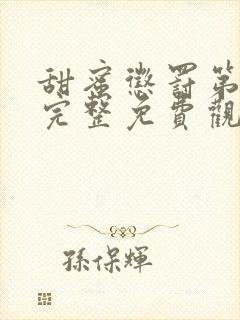 甜蜜懲罰第
完整免費觀
孫保輝